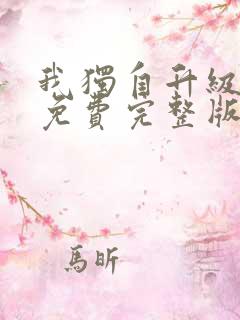 我獨自升級
免費完整版
馬昕